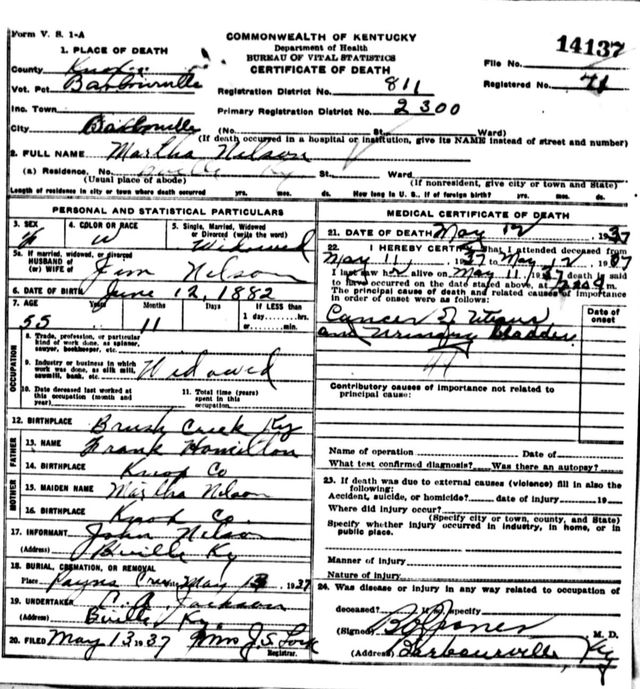 Form V. S. 1-A
COMMONWEALTH OF KENTUCKY
Department of Health
BUREAU OF VITAL STATISTICS
CERTIFICATE OF DEATH
File No. 14137
Registered No. 71
1. PLACE OF DEATH
County Knox
Vot. Pct Barbourville
Registration District No. 811
Inc. Town
Primary Registration District No. 2300
City Barbourville (No. St. Ward)
(If death occurred in a hospital or institution, give its NAME instead of street and number)
2. FULL NAME Martha Nelson
(a) Residence, No. Ky St., Ward.
(Usual place of abode) (If nonresident, give city or town and State)
Length of residence in city or town where death occurred yrs. mos. ds. How long in U. S., if of foreign birth? yrs. mos. ds.
PERSONAL AND STATISTICAL PARTICULARS
3. SEX F
4. COLOR OR RACE W
5. Single, Married, Widowed or Divorced (write the word) Widowed
5a. If married, widowed, or divorced
HUSBAND of
(or) WIFE of Jim Nelson
6. DATE OF BIRTH June 12, 1882
7. AGE Years Months Days If LESS than
1 day, hrs.
or min.
55 11
OCCUPATION
8. Trade, profession, or particular
kind of work done, as spinner,
sawyer, bookkeeper, etc.
9. Industry or business in which
work was done, as silk mill,
sawmill, bank, etc. Widowed
10. Date deceased last worked at
this occupation (month and
year)
11. Total time (years)
spent in this
occupation
12. BIRTHPLACE Brush Creek Ky
FATHER
13. NAME Frank Hamilton
14. BIRTHPLACE Knox Co
MOTHER
15. MAIDEN NAME Martha Nelson
16. BIRTHPLACE Knox Co.
17. INFORMANT John Nelson
(Address) Bville Ky
18. BURIAL, CREMATION, OR REMOVAL
Place Payne Date May 13, 1937
19. UNDERTAKER Jackson
(Address) Bville Ky.
20. FILED May 13 1937 Mrs J.S.
Registrar.
MEDICAL CERTIFICATE OF DEATH
21. DATE OF DEATH May 12 1937
22. I HEREBY CERTIFY That I attended deceased from
May 11, 1937 to May 12, 1937
I last saw h alive on May 11, 1937 death is said
to have occurred on the date stated above, at m.
The principal cause of death and related causes of importance
in order of onset were as follows:
Date of
onset
Cancer of Uterus
and Urinary bladder
Contributory causes of importance not related to
principal cause:
Name of operation Date of
What test confirmed diagnosis? Was there an autopsy?
23. If death was due to external causes (violence) fill in also the
following:
Accident, suicide, or homicide? date of injury 19
Where did injury occur?
(Specify city or town, county, and State)
Specify whether injury occurred in industry, in home, or in
public place.
Manner of injury
Nature of injury
24. Was disease or injury in any way related to occupation of
deceased? If so, specify
(Signed) Jones M. D.
(Address) Barbourville, Ky